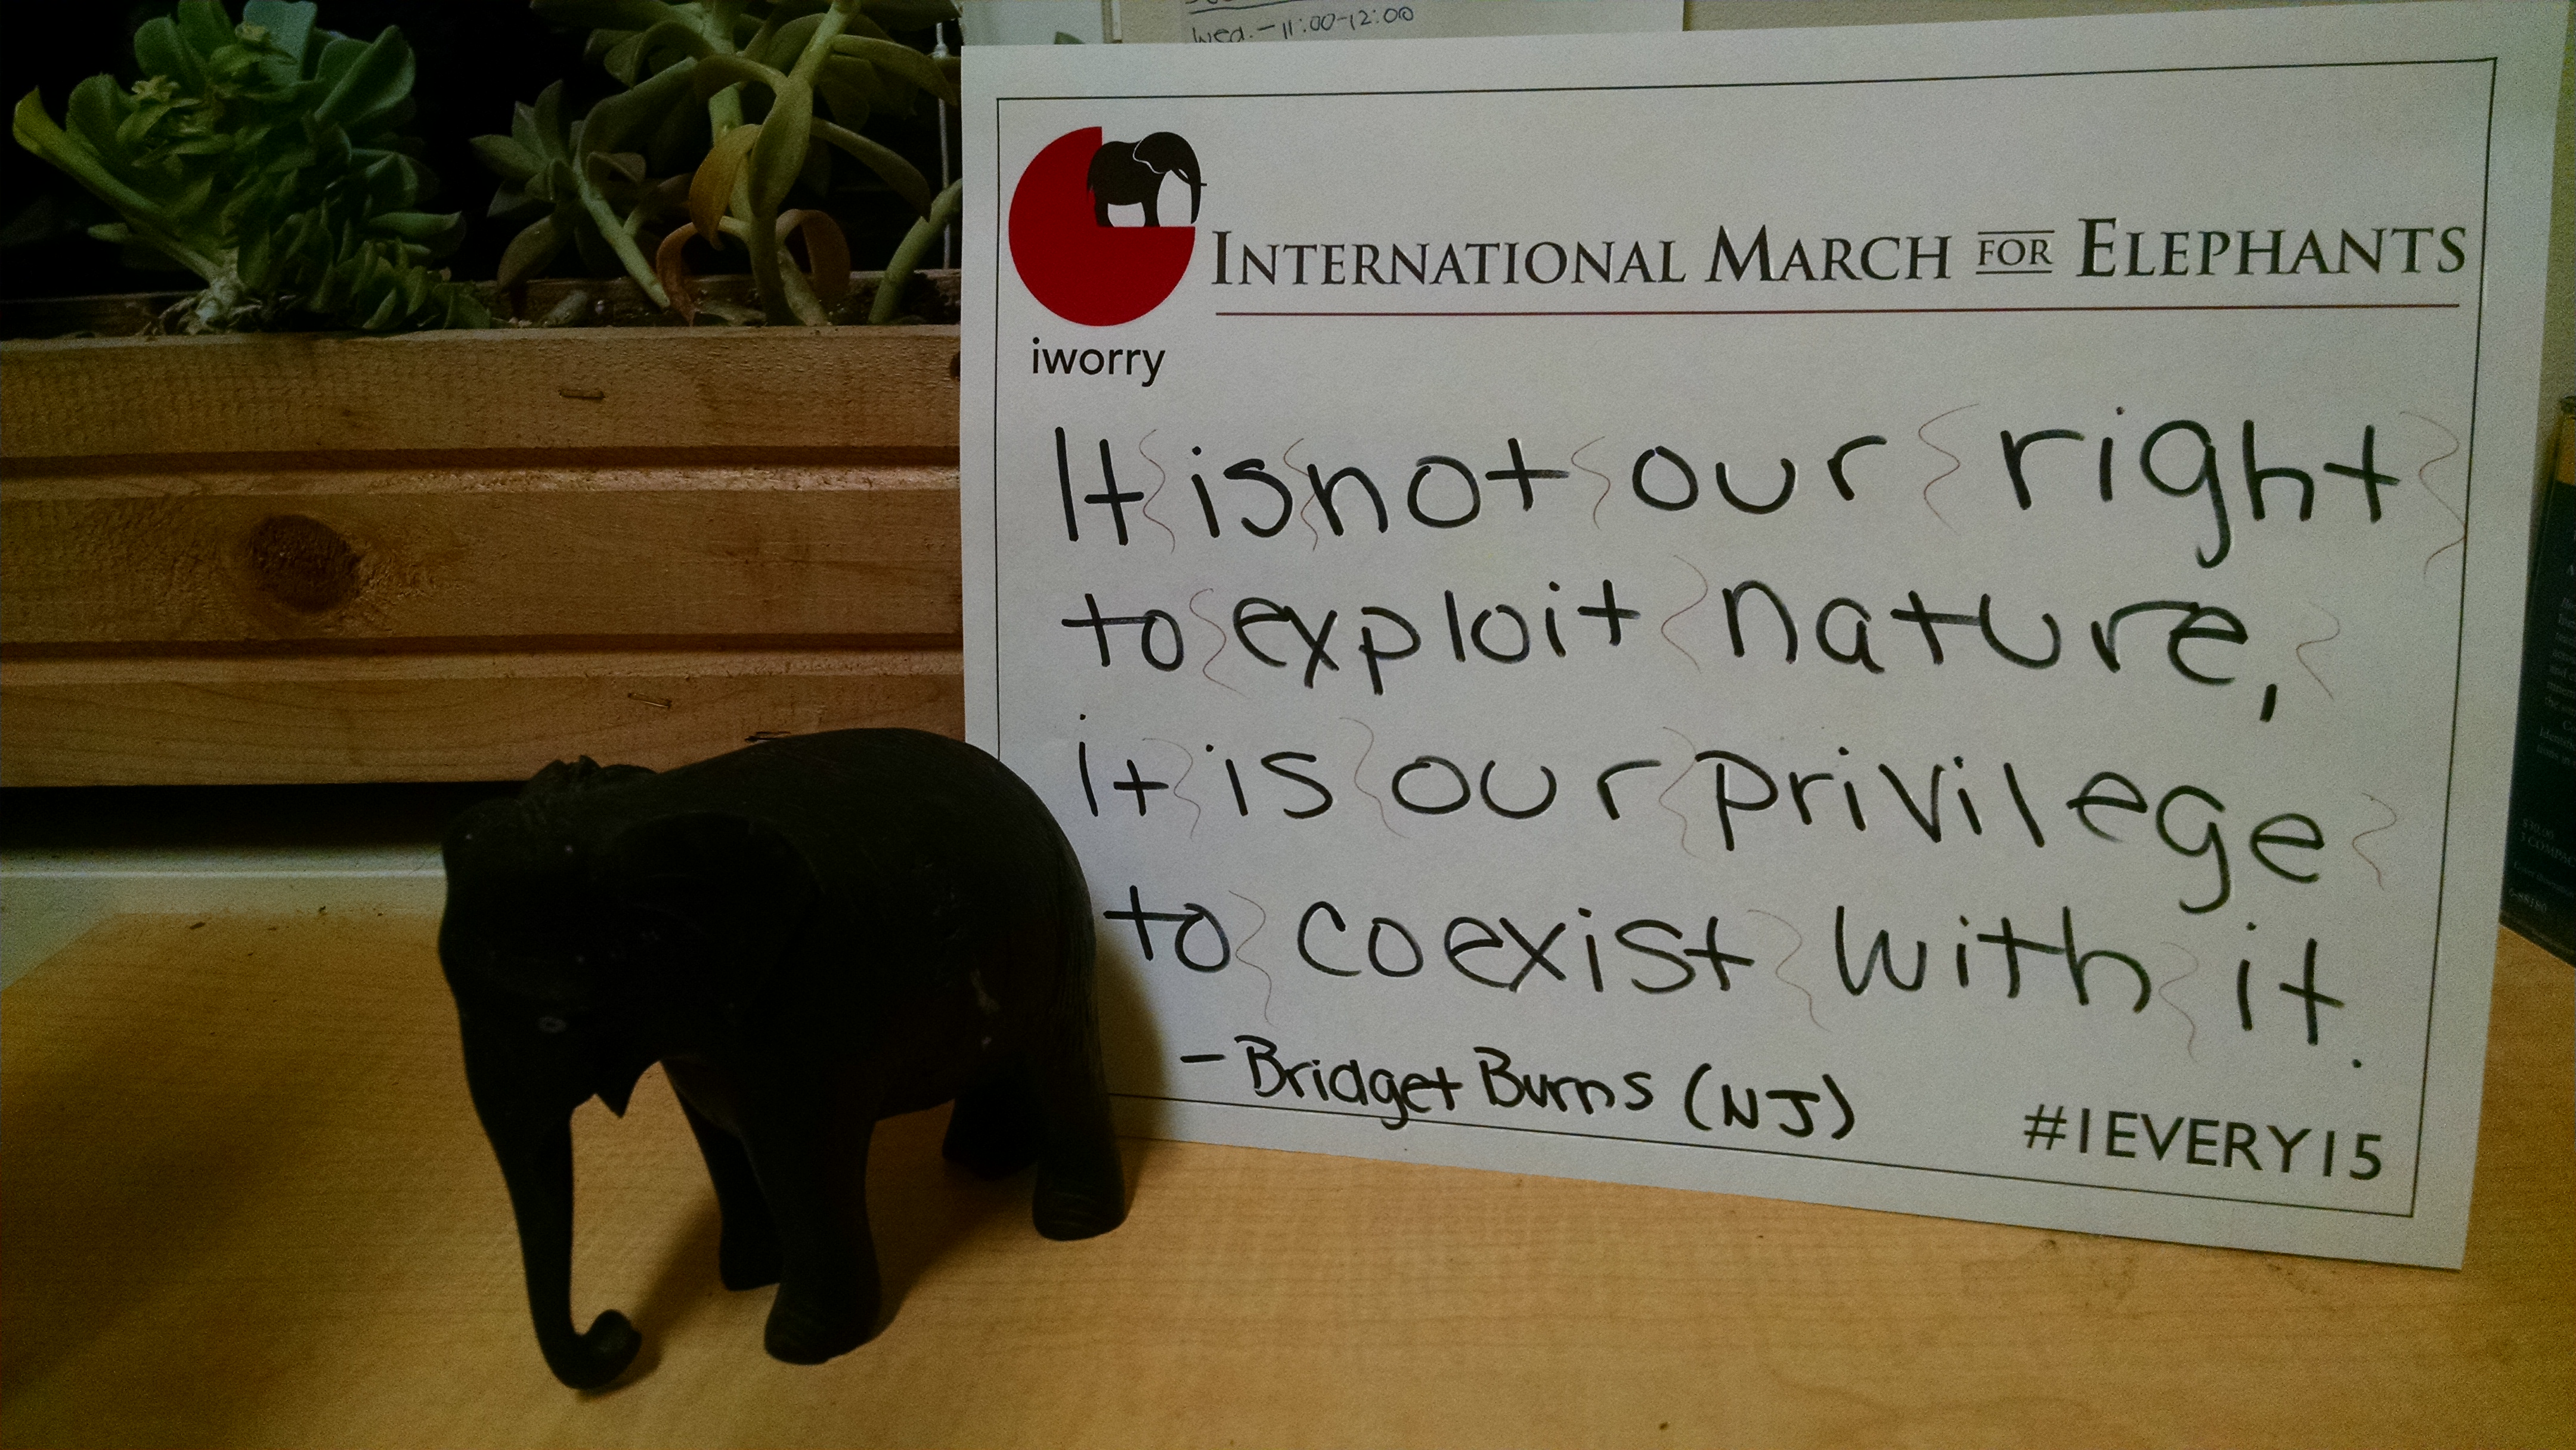 Wed. - 11:00-12:00
INTERNATIONAL MARCH FOR ELEPHANTS
iworry
It is not our right
to exploit nature,
it is our privilege
to coexist with it.
- Bridget Burns (NJ)
#1EVERY15